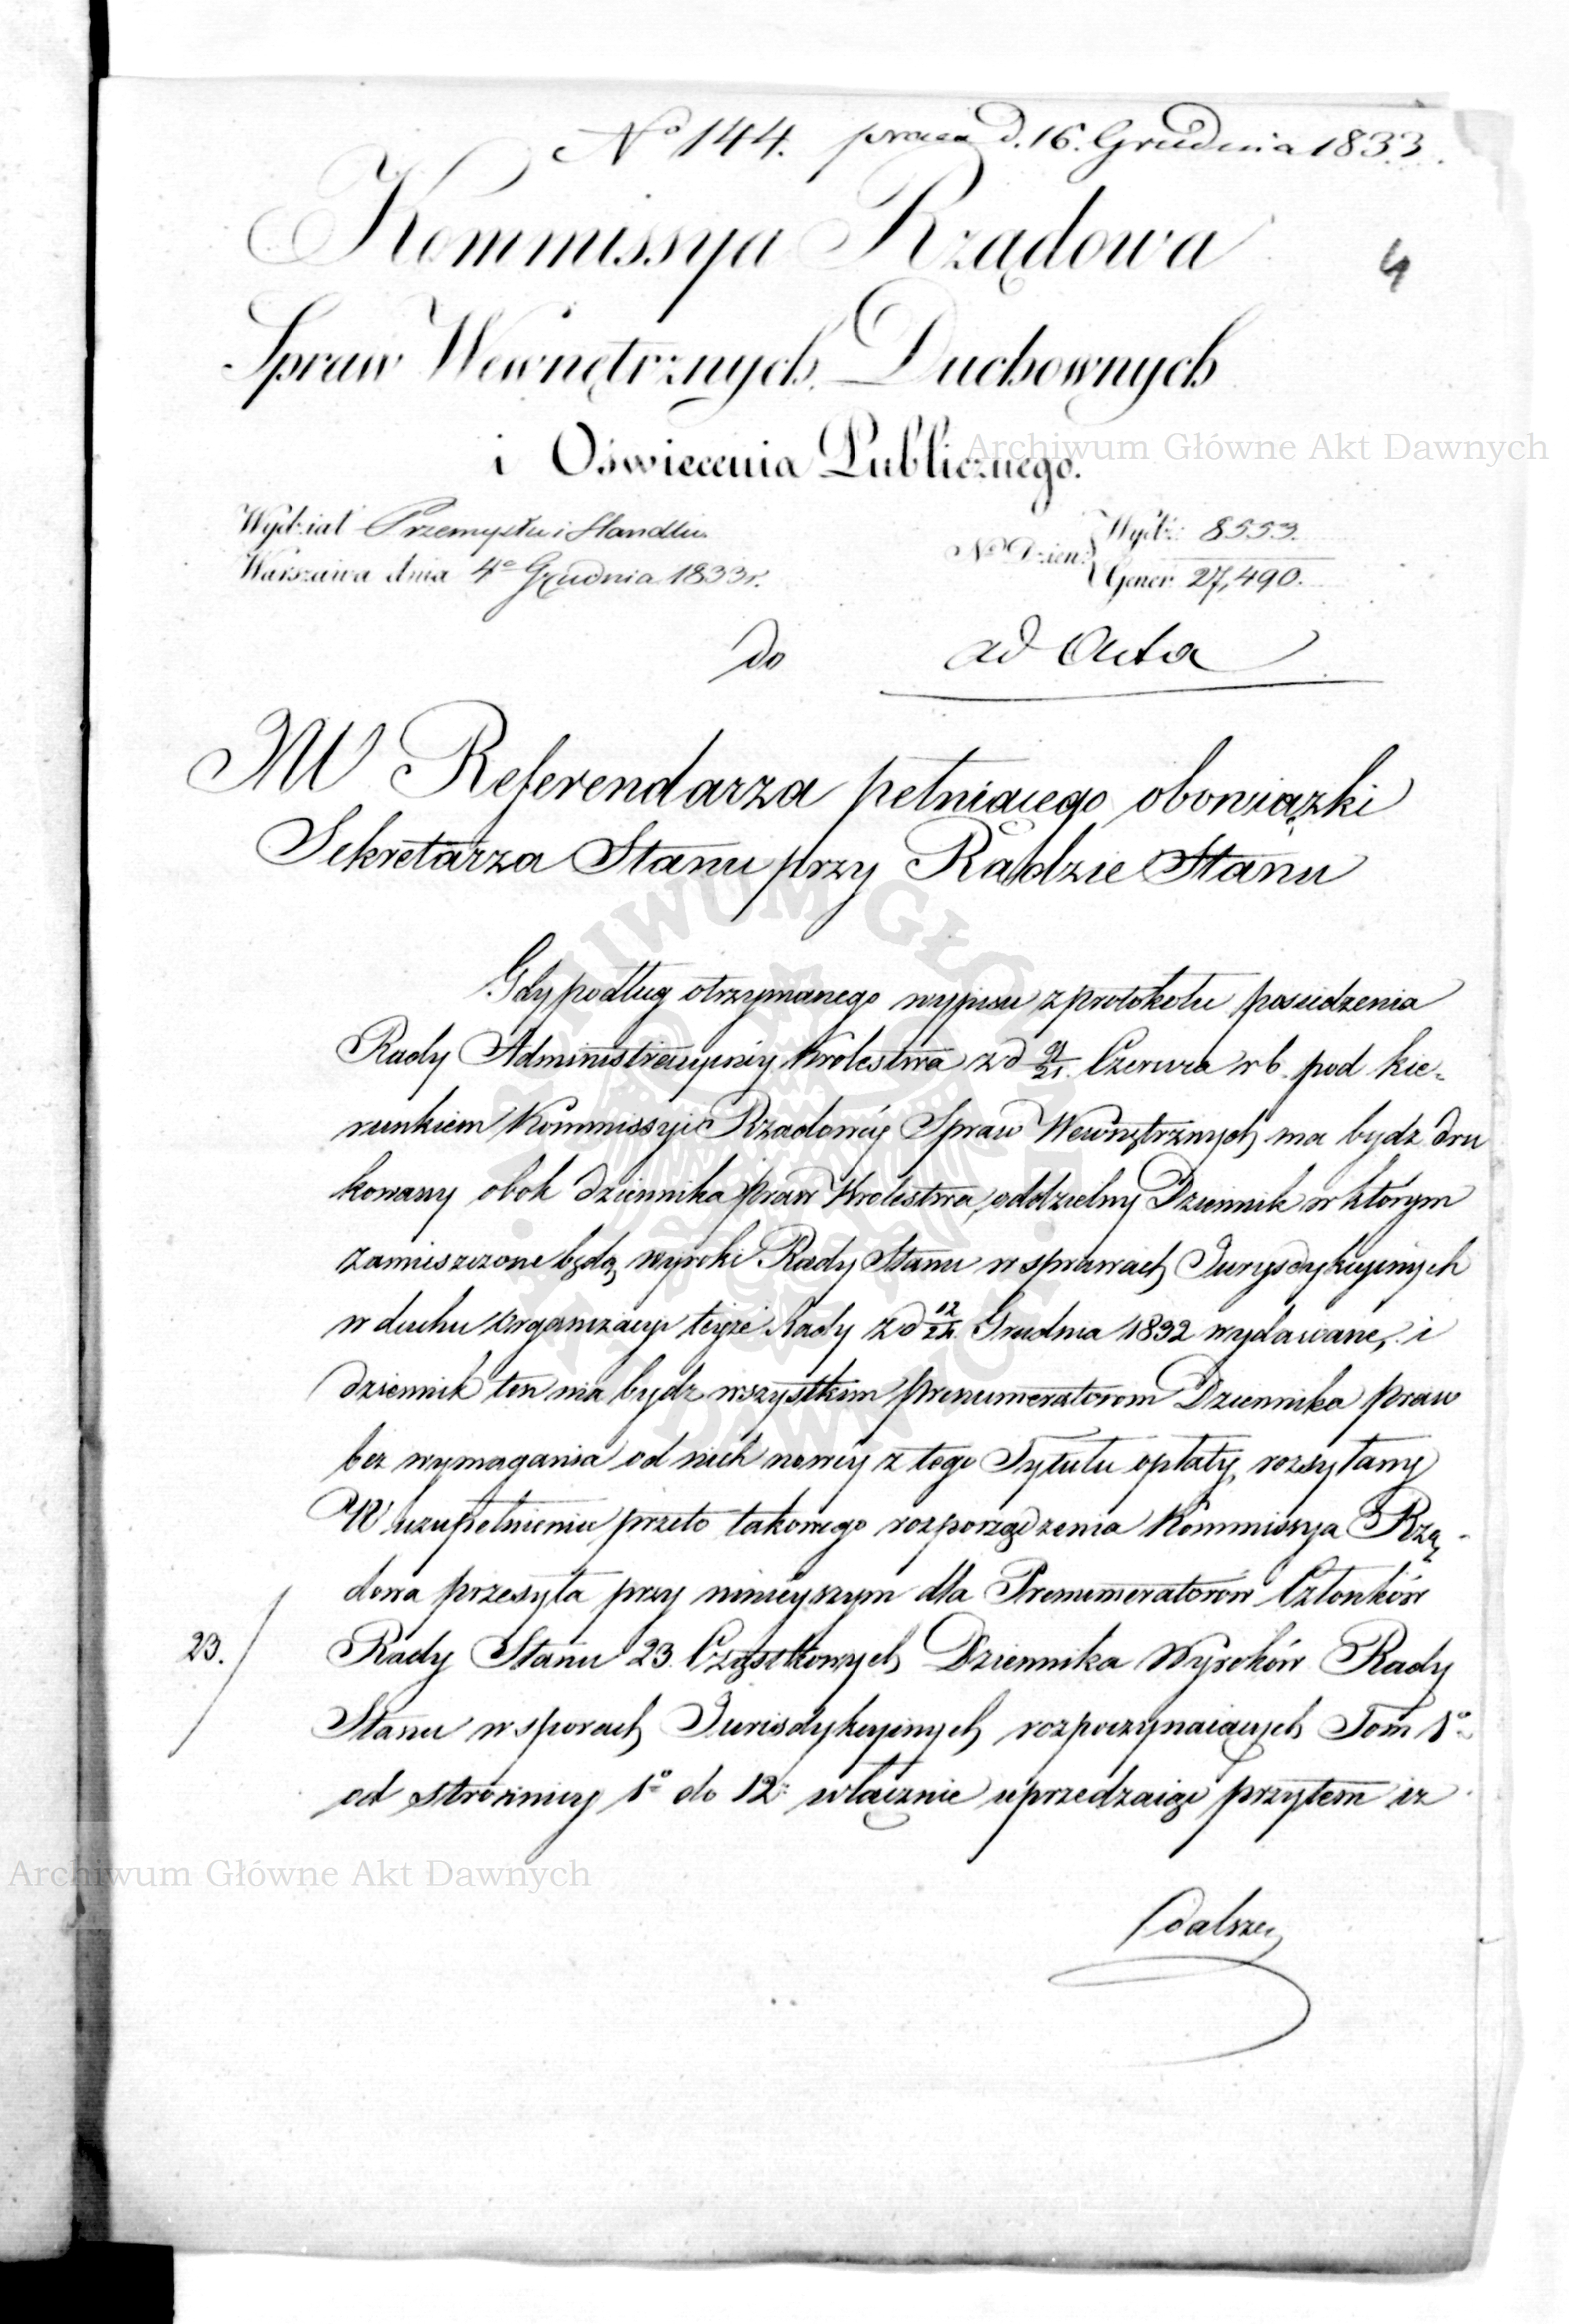 No 144. praes d. 16. Grudnia 1833.
Kommissya Rządowa
4
Spraw Wewnętrznych, Duchownych
i Oświecenia Publicznego.
Archiwum Główne Akt Dawnych
Wydział Przemysłu i Handlu.
Warszawa dnia 4o Grudnia 1833 r.
No Dzien: Wydz: 8553.
Gener: 27,490.
do
ad Acta
JW Referendarza pełniącego obowiązki
Sekretarza Stanu przy Radzie Stanu
Gdy podług otrzymanego wypisu z protokołu posiedzenia
Rady Administracyiney Królestwa z d 9/21. Czerwca r b. pod kie-
runkiem Kommissyi Rządowéy Spraw Wewnętrznych ma bydz dru
kowany obok dziennika praw Królestwa, oddzielny Dziennik w którym
zamieszczone będą wyroki Rady Stanu w sprawach Jurysdykcyinych
w duchu organizacyi teyże Rady z d 12/24. Grudnia 1832 wydawane, i
dziennik ten ma bydz wszystkim prenumeratorom Dziennika praw
bez wymagania od nich nowey z tego Tytułu opłaty, rozsyłany
W uzupełnieniu przeto takowego rozporządzenia Kommissya Rzą-
dowa przesyła przy ninieyszym dla Prenumeratorów Członków
23. Rady Stanu 23 Cząstkowych Dziennika Wyroków Rady
Stanu w sporach Jurisdykcyinych rozpoczynaiących Tom 1o
od stronnicy 1o do 12: włącznie uprzedzaiąc przytem iz
Archiwum Główne Akt Dawnych
dalsze
ARCHIWUM GŁÓWNE AKT DAWNYCH